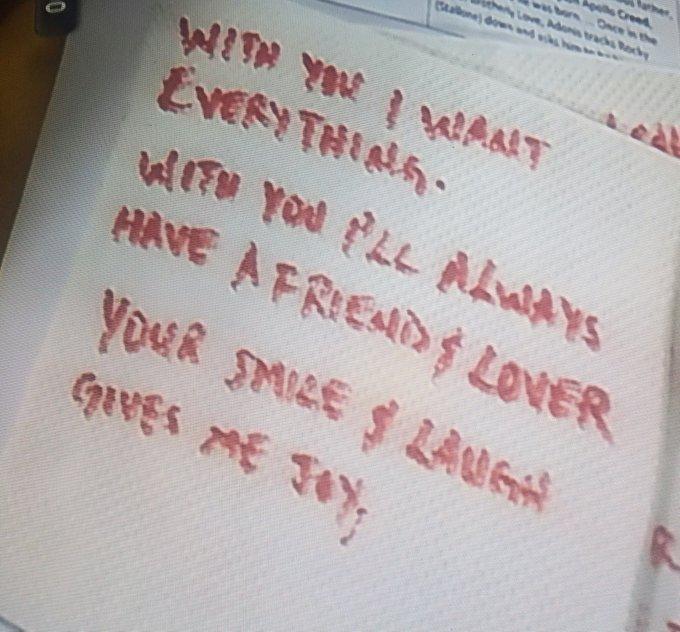 Apollo Creed,
was born ... Once in the
Brotherly Love, Adonis tracks Rocky
(Stallone) down and asks him
WITH YOU I WANT
EVERYTHING.
WITH YOU I'LL ALWAYS
HAVE A FRIEND & LOVER
YOUR SMILE & LAUGH
GIVES ME JOY,